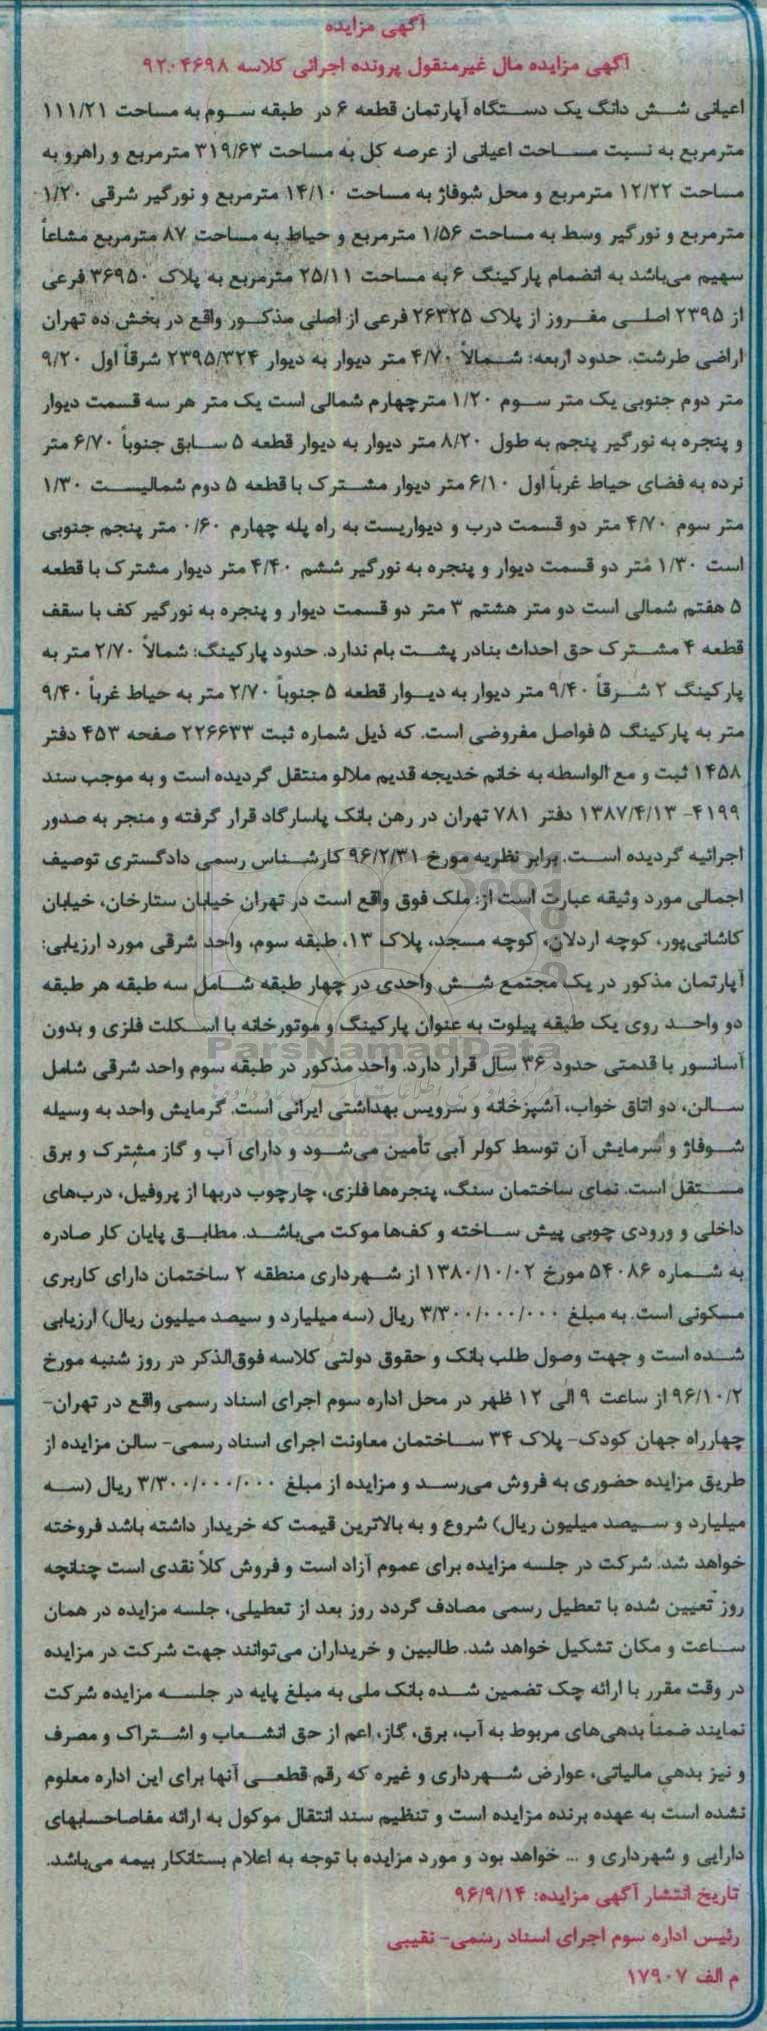 آگهی مزایده
آگهی مزایده مال غیرمنقول پرونده اجرائی کلاسه ۹۲۰۴۶۹۸
اعیانی شش دانگ یک دستگاه آپارتمان قطعه ۶ در طبقه سوم به مساحت ۱۱۱/۲۱
مترمربع به نسبت مساحت اعیانی از عرصه کل به مساحت ۳۱۹/۶۳ مترمربع و راهرو به
مساحت ۱۲/۲۲ مترمربع و محل شوفاژ به مساحت ۱۴/۱۰ مترمربع و نورگیر شرقی ۱/۲۰
مترمربع و نورگیر وسط به مساحت ۱/۵۶ مترمربع و حیاط به مساحت ۸۷ مترمربع مشاعاً
سهیم می‌باشد به انضمام پارکینگ ۶ به مساحت ۲۵/۱۱ مترمربع به پلاک ۳۶۹۵۰ فرعی
از ۲۳۹۵ اصلی مفروز از پلاک ۲۶۳۲۵ فرعی از اصلی مذکور واقع در بخش ده تهران
اراضی طرشت. حدود اربعه: شمالاً ۴/۷۰ متر دیوار به دیوار ۲۳۹۵/۳۲۴ شرقاً اول ۹/۲۰
متر دوم جنوبی یک متر سوم ۱/۲۰ مترچهارم شمالی است یک متر هر سه قسمت دیوار
و پنجره به نورگیر پنجم به طول ۸/۲۰ متر دیوار به دیوار قطعه ۵ سابق جنوباً ۶/۷۰ متر
نرده به فضای حیاط غرباً اول ۶/۱۰ متر دیوار مشترک با قطعه ۵ دوم شمالیست ۱/۳۰
متر سوم ۴/۷۰ متر دو قسمت درب و دیواریست به راه پله چهارم ۰/۶۰ متر پنجم جنوبی
است ۱/۳۰ متر دو قسمت دیوار و پنجره به نورگیر ششم ۴/۴۰ متر دیوار مشترک با قطعه
۵ هفتم شمالی است دو متر هشتم ۳ متر دو قسمت دیوار و پنجره به نورگیر کف با سقف
قطعه ۴ مشترک حق احداث بنادر پشت بام ندارد. حدود پارکینگ: شمالاً ۲/۷۰ متر به
پارکینگ ۲ شرقاً ۹/۴۰ متر دیوار به دیوار قطعه ۵ جنوباً ۲/۷۰ متر به حیاط غرباً ۹/۴۰
متر به پارکینگ ۵ فواصل مفروضی است. که ذیل شماره ثبت ۲۲۶۶۳۳ صفحه ۴۵۳ دفتر
۱۴۵۸ ثبت و مع الواسطه به خانم خدیجه قدیم ملالو منتقل گردیده است و به موجب سند
۴۱۹۹- ۱۳۸۷/۴/۱۳ دفتر ۷۸۱ تهران در رهن بانک پاسارگاد قرار گرفته و منجر به صدور
اجرائیه گردیده است. برابر نظریه مورخ ۹۶/۲/۳۱ کارشناس رسمی دادگستری توصیف
اجمالی مورد وثیقه عبارت است از: ملک فوق واقع است در تهران خیابان ستارخان، خیابان
کاشانی‌پور، کوچه اردلان، کوچه مسجد، پلاک ۱۳، طبقه سوم، واحد شرقی مورد ارزیابی:
آپارتمان مذکور در یک مجتمع شش واحدی در چهار طبقه شامل سه طبقه هر طبقه
دو واحد روی یک طبقه پیلوت به عنوان پارکینگ و موتورخانه با اسکلت فلزی و بدون
ParsNamadData
آسانسور با قدمتی حدود ۳۶ سال قرار دارد. واحد مذکور در طبقه سوم واحد شرقی شامل
سالن، دو اتاق خواب، آشپزخانه و سرویس بهداشتی ایرانی است. گرمایش واحد به وسیله
شوفاژ و سرمایش آن توسط کولر آبی تأمین می‌شود و دارای آب و گاز مشترک و برق
مستقل است. نمای ساختمان سنگ، پنجره‌ها فلزی، چارچوب دربها از پروفیل، درب‌های
داخلی و ورودی چوبی پیش ساخته و کف‌ها موکت می‌باشد. مطابق پایان کار صادره
به شماره ۵۴۰۸۶ مورخ ۱۳۸۰/۱۰/۰۲ از شهرداری منطقه ۲ ساختمان دارای کاربری
مسکونی است. به مبلغ ۳/۳۰۰/۰۰۰/۰۰۰ ریال (سه میلیارد و سیصد میلیون ریال) ارزیابی
شده است و جهت وصول طلب بانک و حقوق دولتی کلاسه فوق‌الذکر در روز شنبه مورخ
۹۶/۱۰/۲ از ساعت ۹ الی ۱۲ ظهر در محل اداره سوم اجرای اسناد رسمی واقع در تهران-
چهارراه جهان کودک- پلاک ۳۴ ساختمان معاونت اجرای اسناد رسمی- سالن مزایده از
طریق مزایده حضوری به فروش می‌رسد و مزایده از مبلغ ۳/۳۰۰/۰۰۰/۰۰۰ ریال (سه
میلیارد و سیصد میلیون ریال) شروع و به بالاترین قیمت که خریدار داشته باشد فروخته
خواهد شد. شرکت در جلسه مزایده برای عموم آزاد است و فروش کلاً نقدی است چنانچه
روز تعیین شده با تعطیل رسمی مصادف گردد روز بعد از تعطیلی، جلسه مزایده در همان
ساعت و مکان تشکیل خواهد شد. طالبین و خریداران می‌توانند جهت شرکت در مزایده
در وقت مقرر با ارائه چک تضمین شده بانک ملی به مبلغ پایه در جلسه مزایده شرکت
نمایند ضمناً بدهی‌های مربوط به آب، برق، گاز، اعم از حق انشعاب و اشتراک و مصرف
و نیز بدهی مالیاتی، عوارض شهرداری و غیره که رقم قطعی آنها برای این اداره معلوم
نشده است به عهده برنده مزایده است و تنظیم سند انتقال موکول به ارائه مفاصاحسابهای
دارایی و شهرداری و ... خواهد بود و مورد مزایده با توجه به اعلام بستانکار بیمه می‌باشد.
تاریخ انتشار آگهی مزایده: ۹۶/۹/۱۴
رئیس اداره سوم اجرای اسناد رسمی- نقیبی
م الف ۱۷۹۰۷